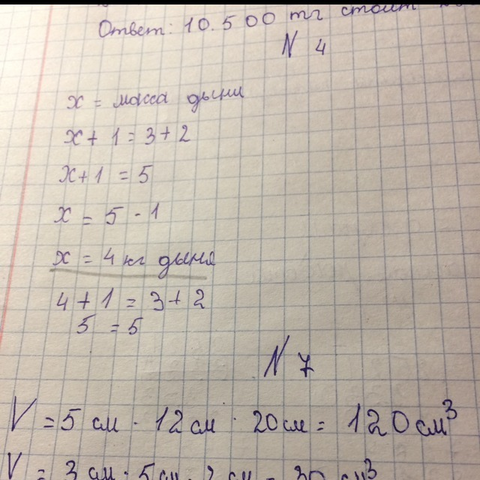 Ответ: 10.500 тг стоит
N 4
x = масса дыни
x + 1 = 3 + 2
x + 1 = 5
x = 5 - 1
x = 4 кг дыня
4 + 1 = 3 + 2
5 = 5
N 7
V = 5 см · 12 см · 20 см = 120 см³
V = 3 см · 5 см · 2 см = 30 см³